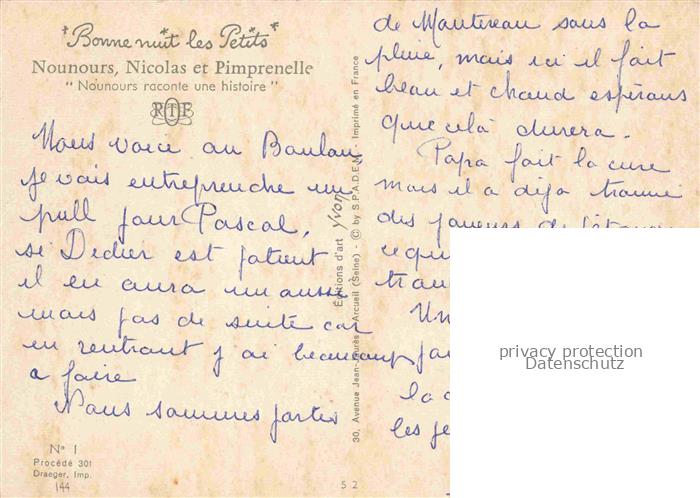 "Bonne nuit les Petits"
Nounours, Nicolas et Pimprenelle
"Nounours raconte une histoire"
RTF
Nous voici au Boulou
je vais entreprendre un
pull pour Pascal,
si Didier est patient
il en aura un aussi
mais pas de suite car
en rentrant j'ai beaucoup
a faire
Nous sommes partis
N° 1
Procédé 301
Draeger, Imp.
144
Editions d'art Yvon
30, Avenue Jean-Jaurès - Arcueil (Seine) - © by S.P.A.D.E.M. Imprimé en France
52
de Montereau sous la
pluie, mais ici il fait
beau et chaud espérons
que cela durera.
Papa fait la cure
mais il a déja trouvé
des joueurs de
les
privacy protection
Datenschutz